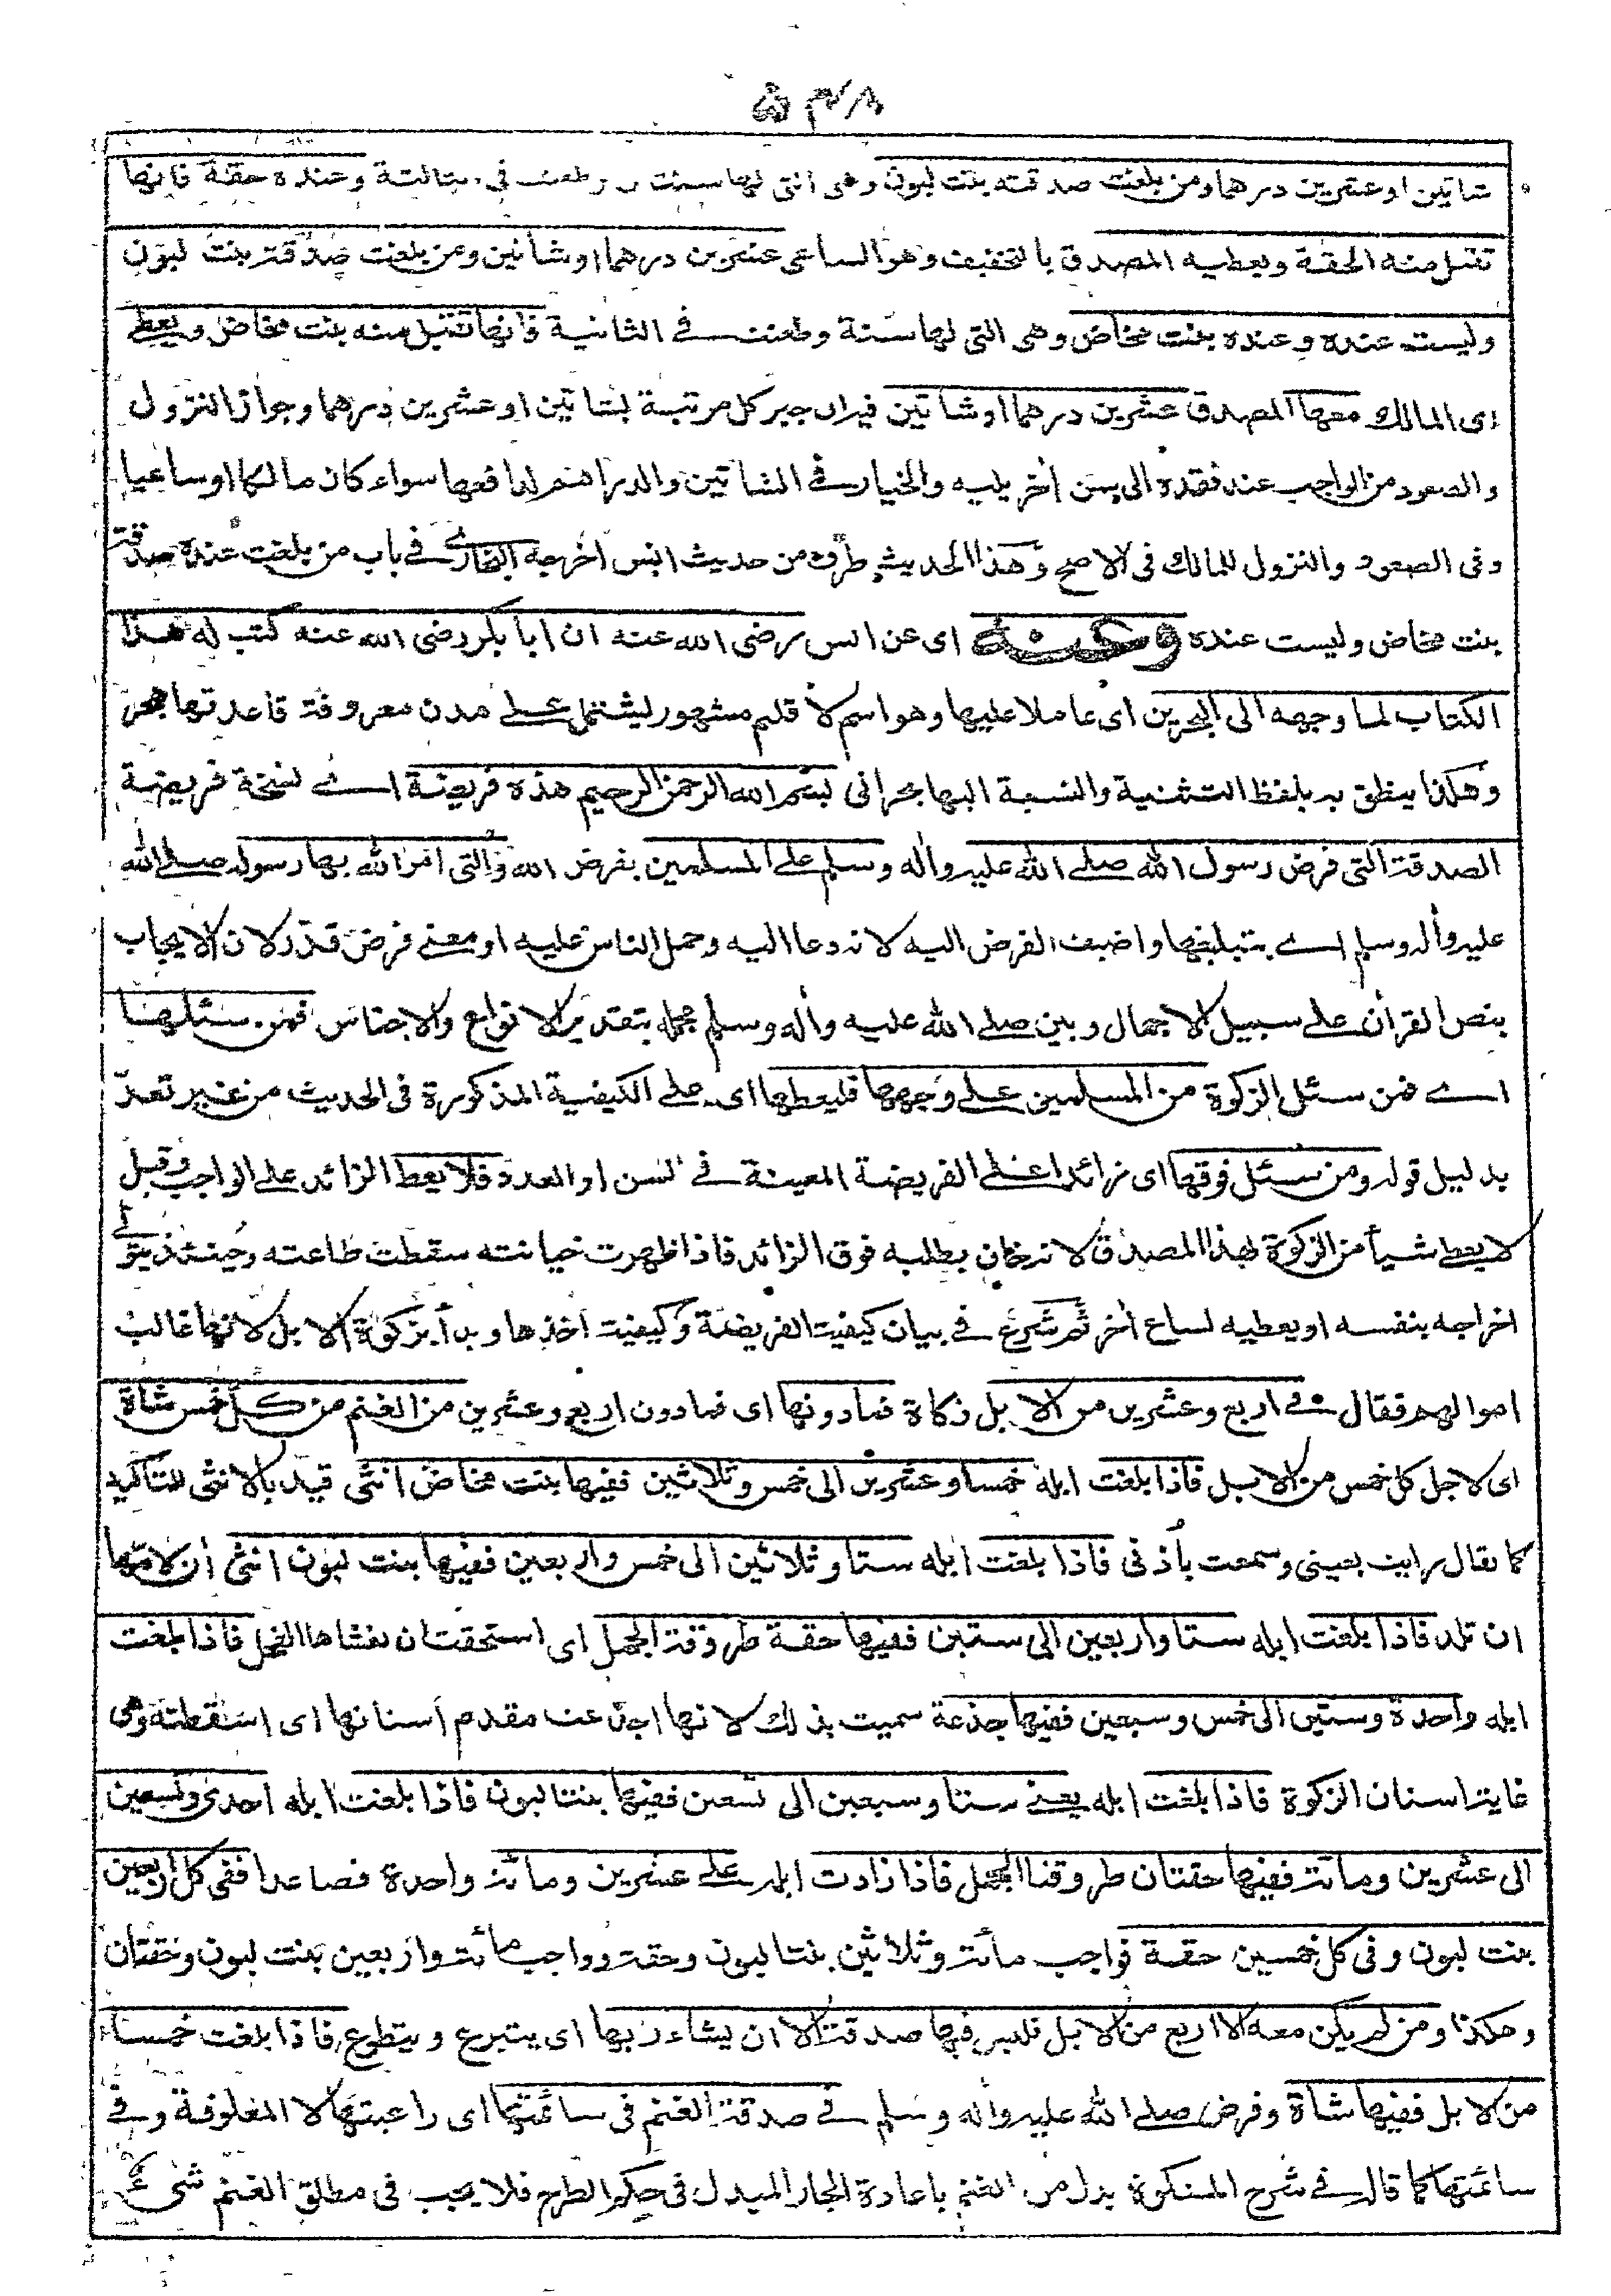 ۵۳۸
شاتين او عشرين درهما ومن بلغت صدقته بنت لبون وهى انثى لها سنتان وطعنت فى الثالثة وعنده حقة فانها
تقبل منه الحقة ويعطيه المصدق بالتخفيف وهو الساعى عشرين درهما او شاتين ومن بلغت صدقته بنت لبون
وليست عنده وعنده بنت مخاض وهى التى لها سنة وطعنت فى الثانية فانها تقبل منه بنت مخاض ويعطى
اى المالك معها المصدق عشرين درهما او شاتين فيران جبر كل مرتبة بشاتين او عشرين درهما وجواز النزول
والصعود من الواجب عند فقده الى سن أخر يليه والخيار فى الشاتين والدراهم لدافعها سواء كان مالكا او ساعيا
وفى الصعود والنزول للمالك فى الاصح وهذا الحديث طرف من حديث انس اخرجه البخارى فى باب من بلغت عنده صدقة
بنت مخاض وليست عنده وعنه اى عن انس رضى الله عنه ان ابا بكر رضى الله عنه كتب له هذا
الكتاب لما وجهه الى البحرين اى عاملا عليها وهو اسم لاقليم مشهور ليشتمل على مدن معروفة قاعدتها هجر
وهكذا ينطق به بلفظ التثنية والنسبة اليها بحرانى بسم الله الرحمن الرحيم هذه فريضة اى نسخة فريضة
الصدقة التى فرض رسول الله صلى الله عليه وأله وسلم على المسلمين بفرض الله والتى امر الله بها رسوله صلى الله
عليه وأله وسلم اى بتبليغها واضيف الفرض اليه لانه دعا اليه وحمل الناس عليه او معنى فرض قدّر لان الايجاب
بنص القرأن على سبيل الاجمال وبين صلى الله عليه وأله وسلم مجمله بتقدير الانواع والاجناس فمن سئلها
اى فمن سئل الزكوة من المسلمين على وجهها فليعطها اى على الكيفية المذكورة فى الحديث من غير تعدّ
بدليل قوله ومن سئل فوقها اى زائدا على الفريضة المعينة فى السن او العدد فلا يعط الزائد على الواجب وقيل
لا يعطى شيأ من الزكوة لهذا المصدق لانه خان بطلبه فوق الزائد فاذا ظهرت خيانته سقطت طاعته وحينئذ يتولى
اخراجه بنفسه او يعطيه لساع أخر ثم شرع فى بيان كيفية الفريضة وكيفية اخذها وبدأ بزكوة الابل لانها غالب
اموالهم فقال فى اربع وعشرين من الابل زكاة فما دونها اى فما دون اربع وعشرين من الغنم من كل خمس شاة
اى لاجل كل خمس من الابل فاذا بلغت ابله خمسا وعشرين الى خمس وثلاثين ففيها بنت مخاض انثى قيد بالانثى للتأكيد
كما يقال رايت بعينى وسمعت بأذنى فاذا بلغت ابله ستا وثلاثين الى خمس واربعين ففيها بنت لبون انثى أن لامها
ان تلد فاذا بلغت ابله ستا واربعين الى ستين ففيها حقة طروقة الجمل اى استحقت ان يغشاها الفحل فاذا بلغت
ابله واحدة وستين الى خمس وسبعين ففيها جذعة سميت بذلك لانها اجذعت مقدم أسنانها اى اسقطته وهى
غاية اسنان الزكوة فاذا بلغت ابله يعنى ستا وسبعين الى تسعين ففيها بنتا لبون فاذا بلغت ابله احدى وتسعين
الى عشرين ومائة ففيها حقتان طروقتا الجمل فاذا زادت ابله على عشرين ومائة واحدة فصاعدا ففى كل اربعين
بنت لبون وفى كل خمسين حقة فواجب مائة وثلاثين بنتا لبون وحقة وواجب مائة واربعين بنت لبون وحقتان
وهكذا ومن لم يكن معه الا اربع من الابل فليس فيها صدقة الا ان يشاء ربها اى يتبرع ويتطوع فاذا بلغت خمسا
من الابل ففيها شاة وفرض صلى الله عليه وأله وسلم فى صدقة الغنم فى سائمتها اى راعيتها لا المعلوفة وفى
سائمتها كما قال فى شرح المشكوة بدل من الغنم باعادة الجار المبدل فى حكم الطرح فلا يجب فى مطلق الغنم شئ